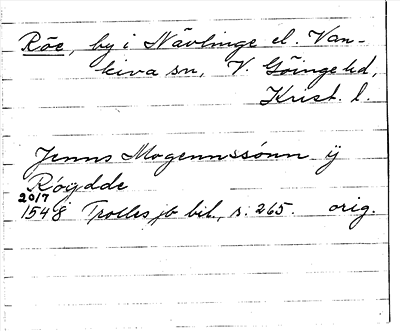 Röe, by i Nävlinge el. Van-
kiva sn, V. Göinge hd,
Krist. l.
Jenns Mogennssönn ÿ
Röydde
20/7
1548 Trolles jb bil., s. 265. orig.